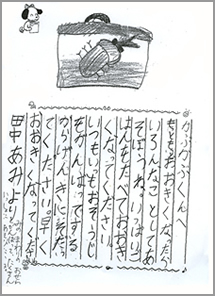 かぶかぶくんへ
もともとおおきくなったら
いろんなことしてあ
そぼうね。いっぱいご
はんもたべておおき
くなってください。
いつもいつもおそうじ
をがんばってする
からげんきにそだっ
てください。早く
おおきくなってくださ
田中あみより